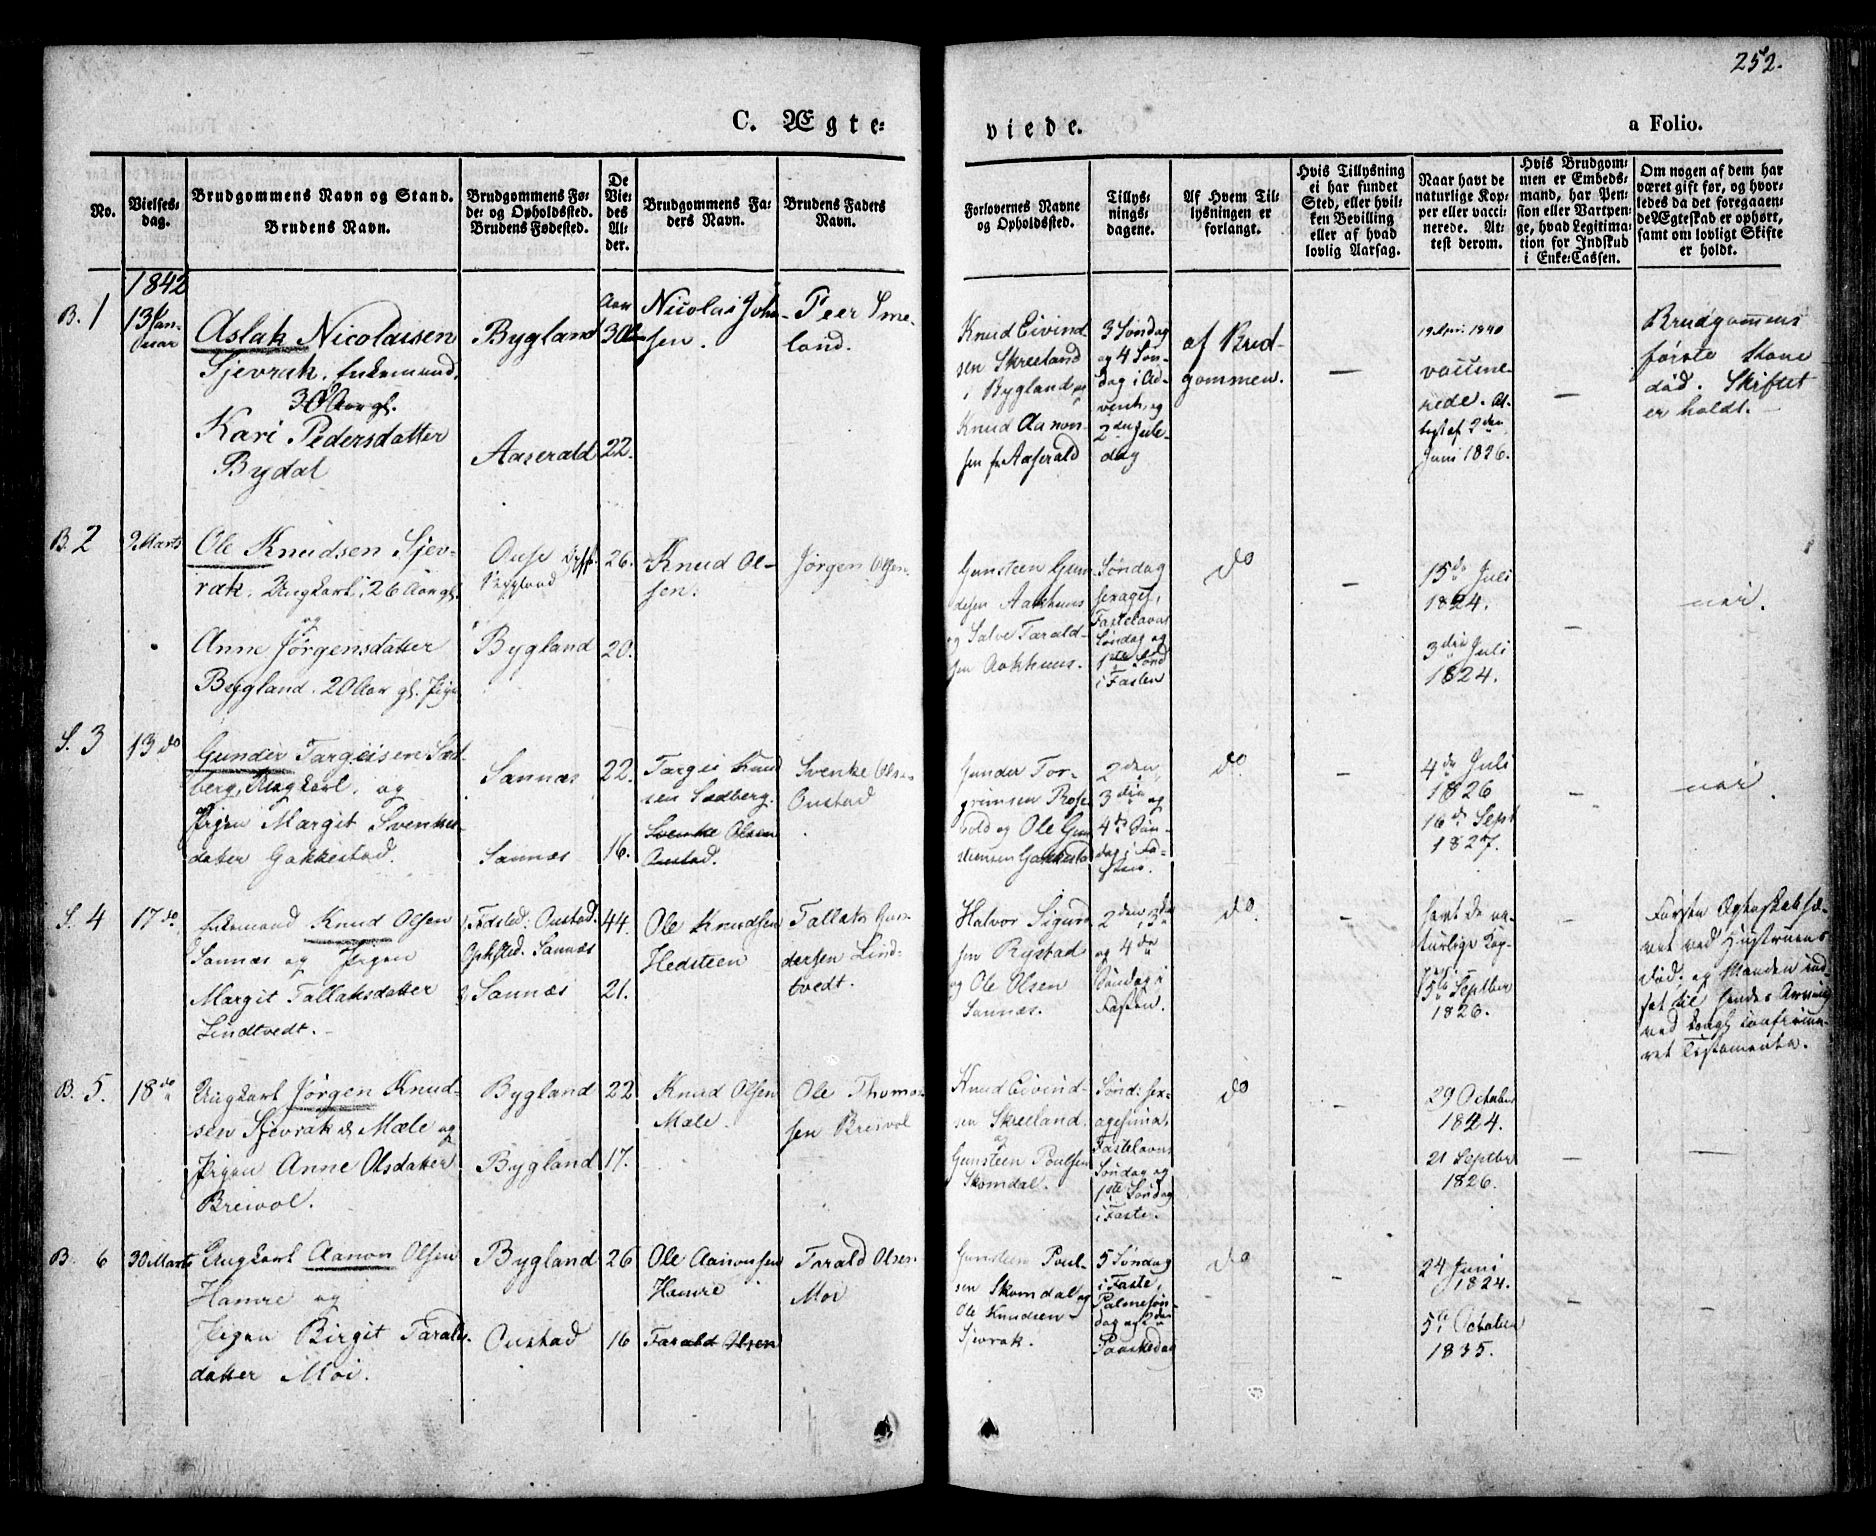 252.
C. Ægte=
viede.
a Folio.
No.
Vielses=
dag.
Brudgommens Navn og Stand.
Brudens Navn.
Brudgommens Fø=
de= og Opholdssted.
Brudens Fødested.
De
Vie=
des
Al=
der.
Brudgommens Fa=
ders Navn.
Brudens Faders
Navn.
Forlovernes Navne
og Opholdssted.
Tillys=
nings=
dagene.
Af Hvem Til=
lysningen er
forlangt.
Hvis Tillysning
ei har fundet
Sted, eller hvil=
ken Bevilling
eller af hvad
lovlig Aarsag.
Naar havt de
naturlige Kop=
per eller vacci=
nerede. At=
test derom.
Hvis Brudgom=
men er Embeds=
mand, har Pen=
sion eller Vartpen=
ge, hvad Legitima=
tion for Indskud
i Enke=Cassen.
Om nogen af dem har
været gift før, og hvor=
ledes da det foregaaen=
de Ægteskab er ophørt,
samt om lovligt Skifte
er holdt.
1842
B. 1
13 Jan-
uar
Aslak Nicolaisen
Sjevrak, Enkemand,
30 Aar gl.
Kari Pedersdatter
Bydal
Bygland
Aaserald
Aar
30
22.
Nicolai John-
sen.
Peer Sme-
land.
Knud Eivind
sen Skreeland
i Bygland og
Knud Aanon-
sen fr Aaserald
3 Søndag
og 4 Søn-
dag i Ad-
vent, og
2den Jule-
dag
af Brud-
gommen.
—
1840
vaccine-
rede. At-
test af 2den
Juni 1826.
—
Brudgommens
første Kone
død. Skiftet
er holdt.
B. 2
9 Marts
Ole Knudsen Sjev-
rak. Ungkarl, 26 Aar gl.
og
Anne Jørgensdatter
Bygland. 20 Aar gl. Pige
Bygland
Bygland
26.
20.
Knud Ol-
sen.
Jørgen Olsen
Gunsteen Gun-
desen Aakhuus
og Salve Tarald-
sen Aakhuus.
Søndag
sexages,
Fastelavns
Søndag og
1ste Sønd
i Fasten
do
—
15de Juli
1824.
3die Juli
1824.
—
nei.
S. 3
13 do
Gunder Targeisen Sæd-
berg, Ungkarl. og
Pigen Margit Svenke-
datter Gakkestad.
Sannæs
Sannæs
22.
16.
Targei Knud
sen Sædberg.
Svenke Olsen
Oustad.
Svenke Olsen
Oustad
Gunder Tor-
grimsen Rose-
vold og Ole Gun
Gakkestad
2den,
3die og
4de Søn-
dag i Fa-
sten.
do.
—
4de Juli
1826
16de Sept
1827.
—
nei
S. 4
17 do
Enkemand Knud Olsen
Sannæs og Pigen
Margit Tallaksdatter
Lindtvedt.
Fødsted. Oustad.
Opholdsted. Sannæs
Sannæs
44.
21.
Ole Knudsen
Hedsteen
Tallak Gun-
dersen Lind-
tvedt.
Halvor Sigurd
sen Rystad
og Ole Olsen
Sannæs.
2den, 3de
og 4de
Søndag i
Fasten.
do.
havt de na-
turlige Kop-
per
5te Septber
1826.
Første Ægteskab hæ-
vet ved Hustruens
død. og Manden ind-
sat til hendes Arving
ved kongl confirme-
ret Testamente.
B. 5.
18 de
Ungkarl Jørgen Knud-
sen Sjevrak & Mæle og
Pigen Anne Olsdatter
Breivol.
Bygland
Bygland
22
17.
Knud Olsen
Mæle.
Ole Thomas
sen Breivol
Knud Eivind-
sen Skreeland.
og
Gunsteen Poulsen
Skomdal.
Sønd: sex-
agesima,
Fastelavns
Søndag og
1ste Søndag
i Faste.
do
—
29 October
1824.
21 Septber
1826.
—
—
B. 6
30 Marts
Ungkarl Aanon Olsen
Hamre og
Pigen Birgit Taralds-
datter Moi.
Bygland
Oustad
26
16
Ole Aanonsen
Hamre
Tarald Olsen
Tarald Olsen
Moi
Gunsteen Poul-
sen Skomdal og
Ole Knudsen
Sjevrak.
5 Søndag
i Faste,
Palmesøn-
dag og 2den
Paaskedag
do
—
24 Juni
1824.
5te October
1835.
—
—